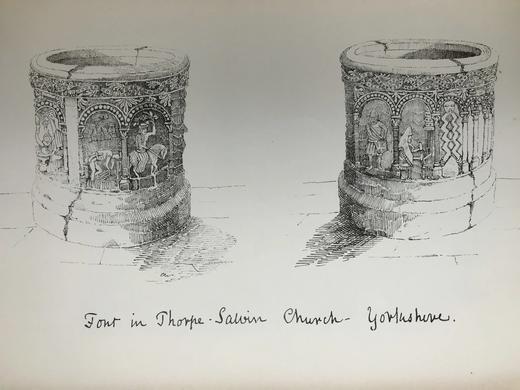 Font in Thorpe-Salvin Church - Yorkshire.